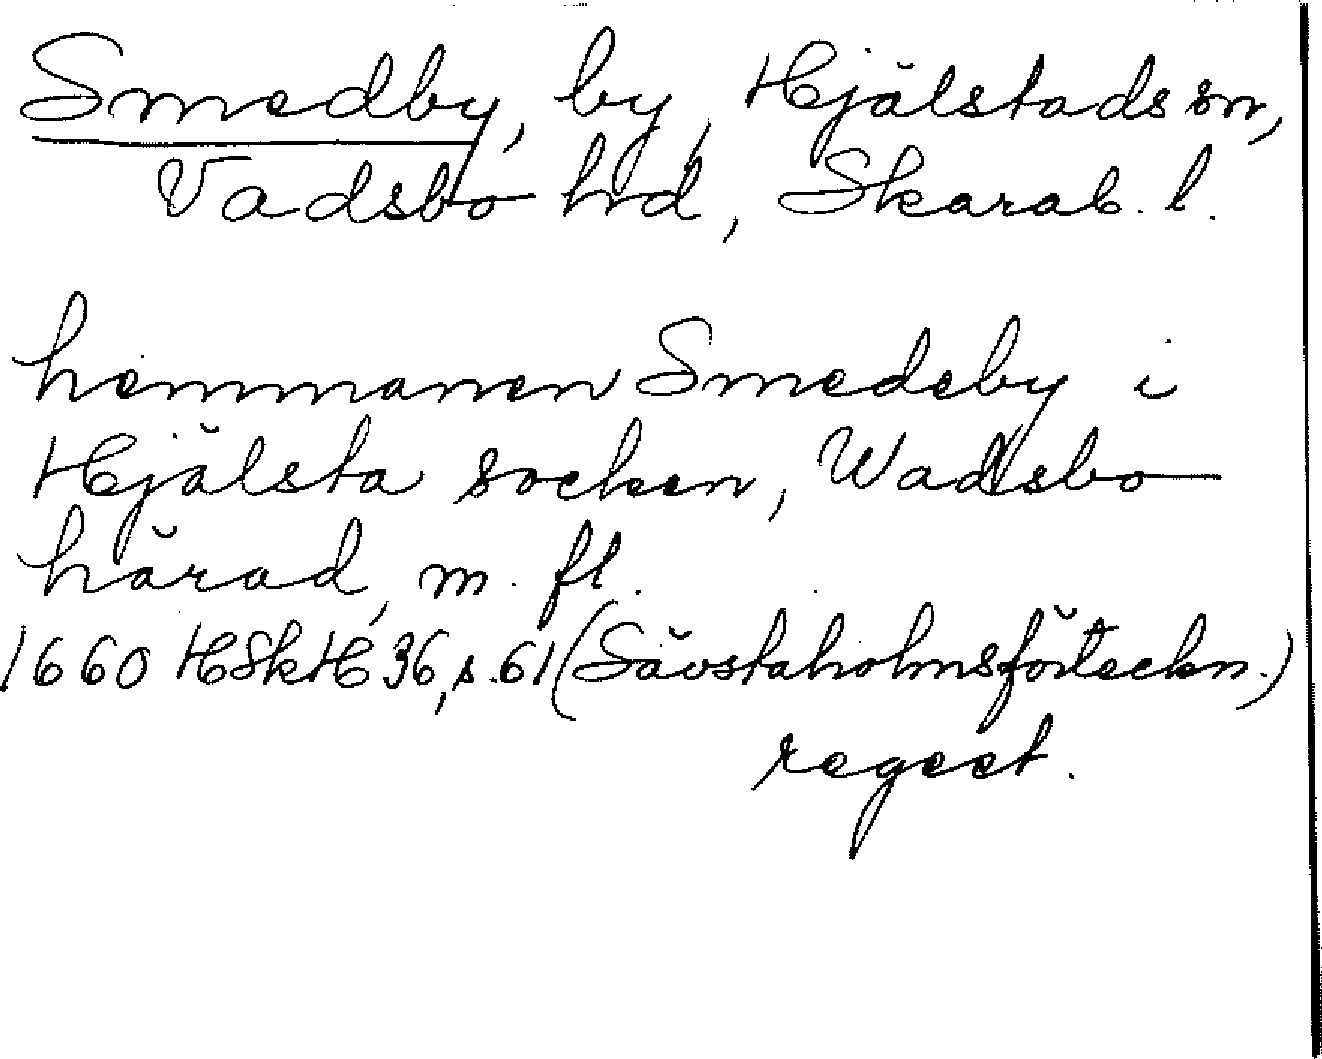 Smedby, by, Hjälstads sn,
Vadsbo hd, Skarab. l.
hemmanen Smedeby i
Hjälsta socken, Wadsbo
härad, m. fl.
1660 HSkH 36, s. 61 (Sävstaholmsförteckn.)
regest.